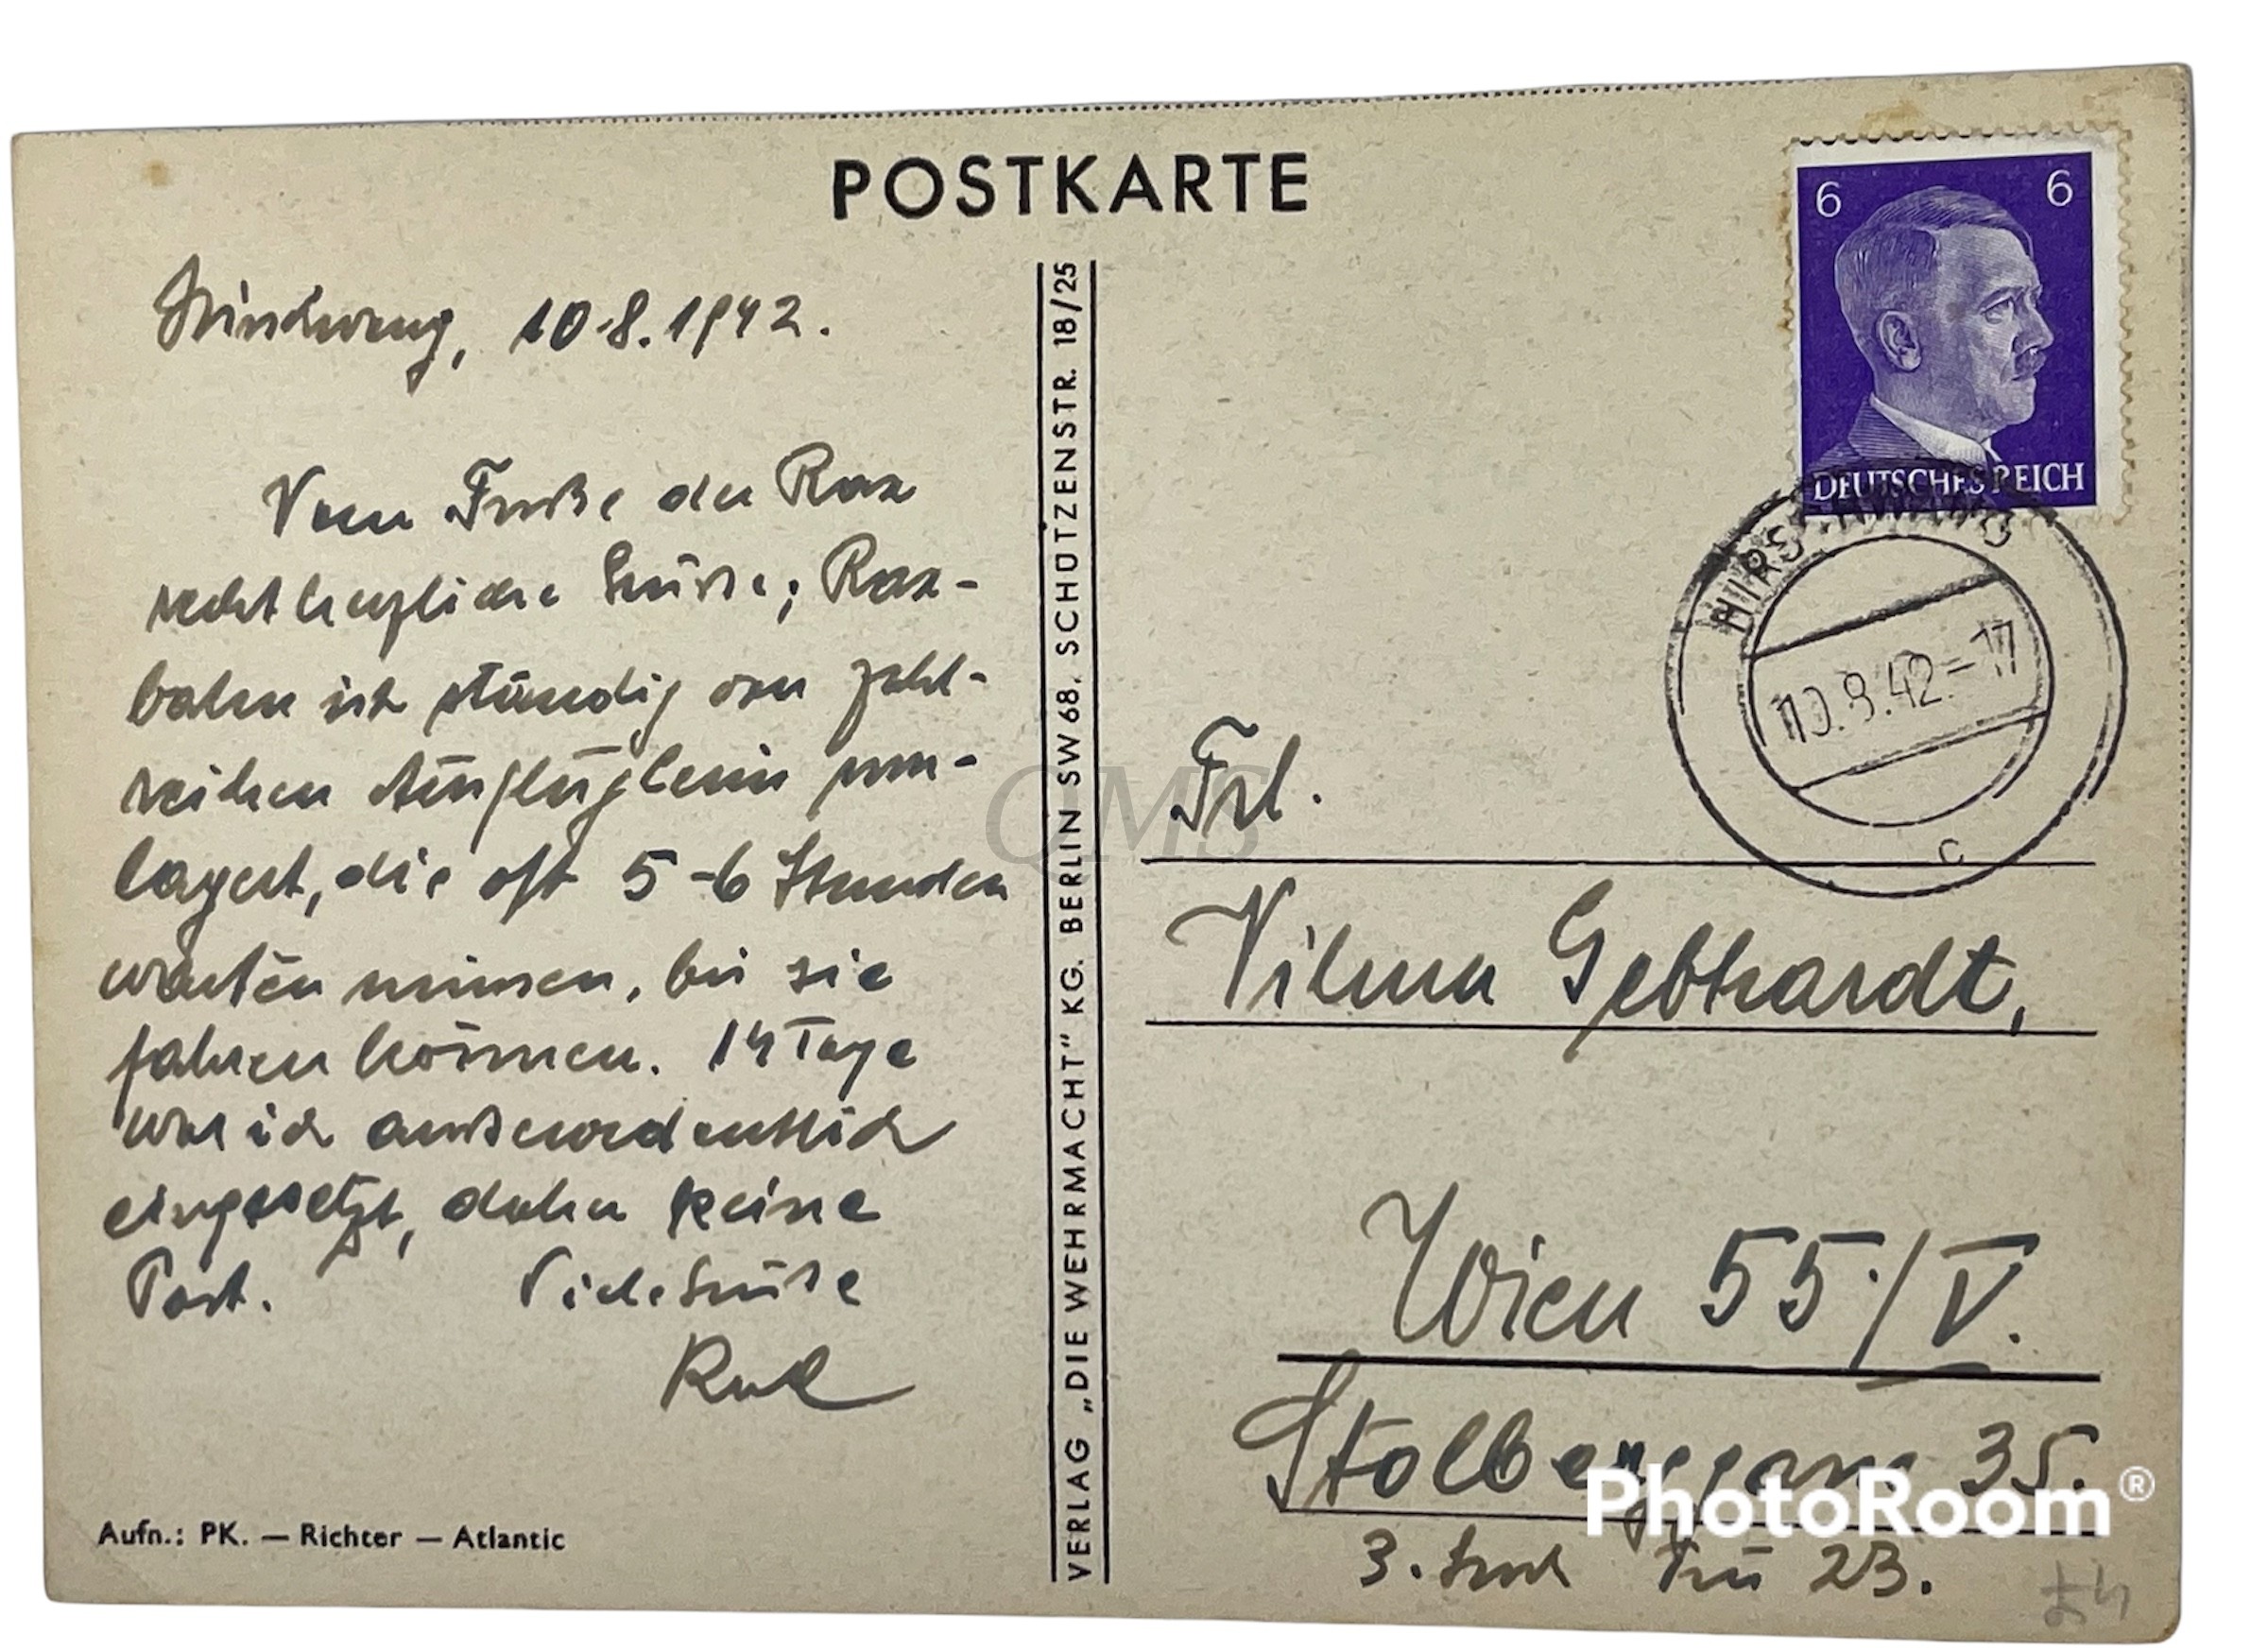 POSTKARTE
Hirschwang, 10.8.1942.
Vom Fuße der Rax
recht herzliche Grüsse; Rax-
bahn ist ständig von zahl-
reichen Ausflüglern um-
lagert, die oft 5-6 Stunden
warten müssen, bis sie
fahren können. 14 Tage
war ich außerordentlich
eingesetzt, daher keine
Post. Viele Grüße
Aufn.: PK. — Richter — Atlantic
VERLAG „DIE WEHRMACHT" KG. BERLIN SW 68, SCHÜTZENSTR. 18/25
6 6
DEUTSCHES REICH
10.8.42.-17
c
Frl.
Vilma Gebhardt,
Wien 55./V.
35.
3. Stock Tür 23.
QMS
PhotoRoom®